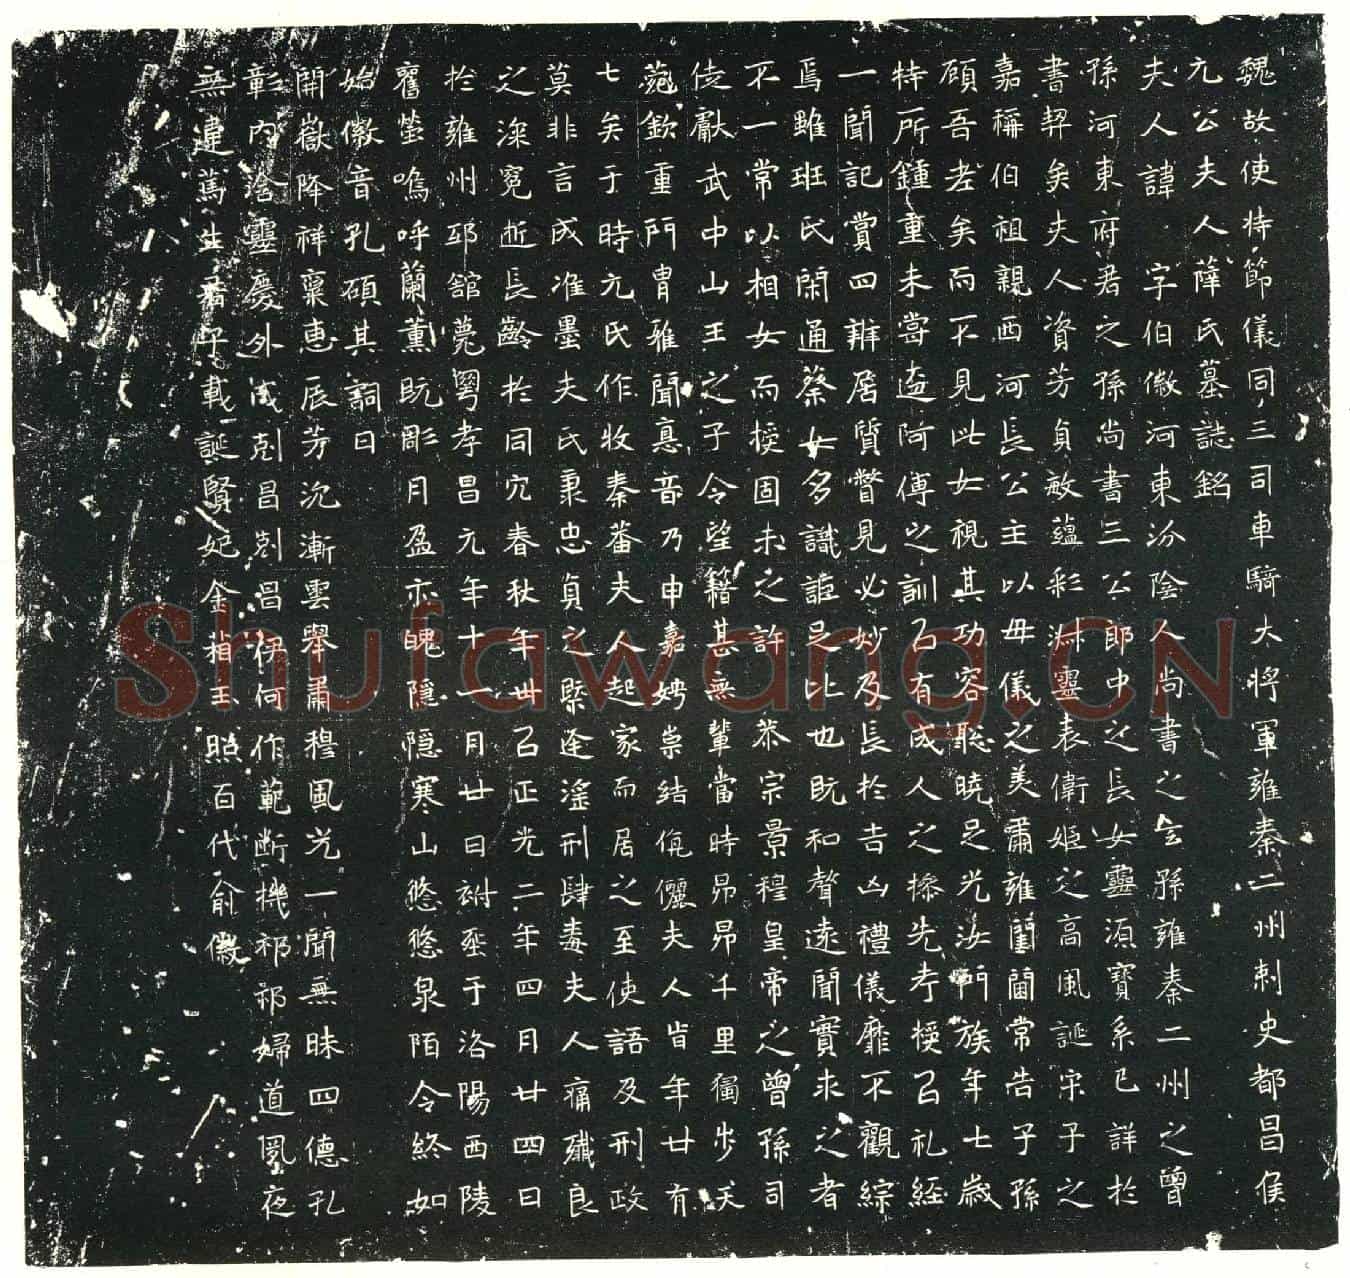 魏故使持節儀同三司車騎大將軍雍秦二州刺史都昌侯
元公夫人薛氏墓誌銘
夫人諱 字伯徽河東汾陰人尚書之玄孫雍秦二州之曾
孫河東府君之孫尚書三公郎中之長女靈源寶系已詳於
書契矣夫人資芳貞敏蘊彩淵靈表衛姬之高風誕宋子之
嘉稱伯祖親西河長公主以母儀之美肅雍閨閫常告子孫
顧吾老矣而不見此女視其功容聰曉足光汝門族年七歲
特所鍾重未嘗違阿傅之訓已有成人之操先考授以礼經
一聞記賞四辨居質瞥見必妙及長於吉凶禮儀靡不觀綜
焉雖班氏閑通蔡女多識詎足比也既和聲遠聞實求之者
不一常以相女而授固未之許恭宗景穆皇帝之曾孫司
徒獻武中山王之子令望籍甚無輩當時昂昂千里獨步天
苑欽重門胄雅聞惪音乃申嘉娉崇結伉儷夫人時年廿有
七矣于時元氏作牧秦蕃夫人起家而居之至使語及刑政
莫非言成准墨夫氏秉忠貞之槩逢滛刑肆毒夫人痛殲良
之深冤逝長齡於同穴春秋年卅以正光二年四月廿四日
於雍州邸舘薨粵孝昌元年十一月廿日祔塟于洛陽西陵
舊塋嗚呼蘭薰既彫月盈亦魄隱隱寒山悠悠泉陌令終如
始徽音孔碩其詞曰
開嶽降祥稟惠辰芳沉漸雲舉肅穆風光一聞無昧四德孔
彰內洽靈慶外成剋昌剋昌伊何作範斷機祁祁婦道夙夜
無違蔫生君子載誕賢妃金相玉照百代俞徽
Shufawang.CN